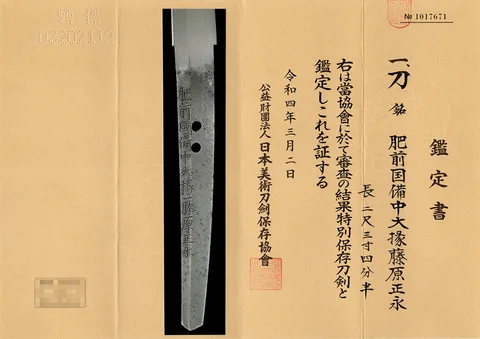 № 1017671
鑑定書
一、刀 銘 肥前国備中大掾藤原正永
長 二尺三寸四分半
右は當協會に於て審査の結果特別保存刀剣と
鑑定しこれを証する
令和四年三月二日
公益財團法人日本美術刀劍保存協會
肥前國備中大掾藤原正永